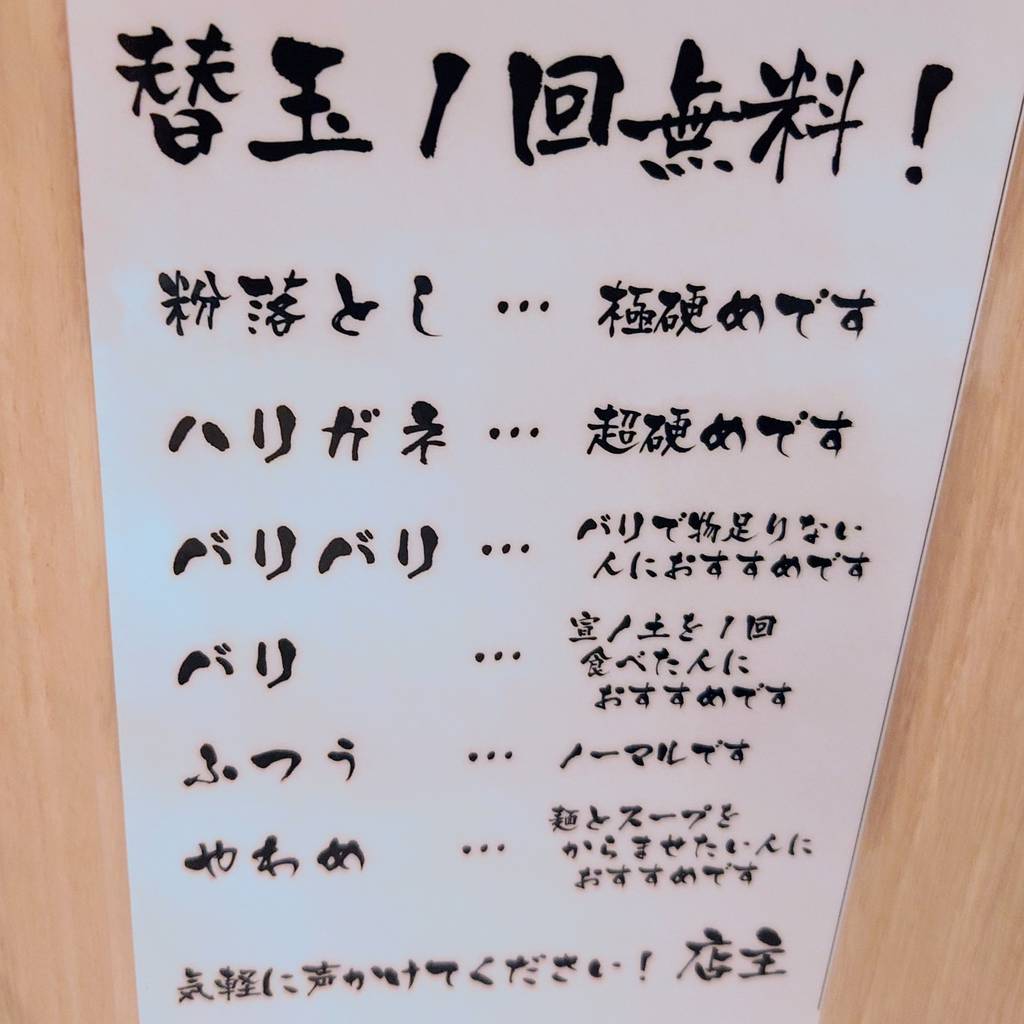 替玉1回無料!
粉落とし … 極硬めです
ハリガネ … 超硬めです
バリバリ … バリで物足りない
人におすすめです
バリ … 宣ノ土を1回
食べた人に
おすすめです
ふつう … ノーマルです
やわめ … 麺とスープを
からませたい人に
おすすめです
気軽に声かけてください! 店主